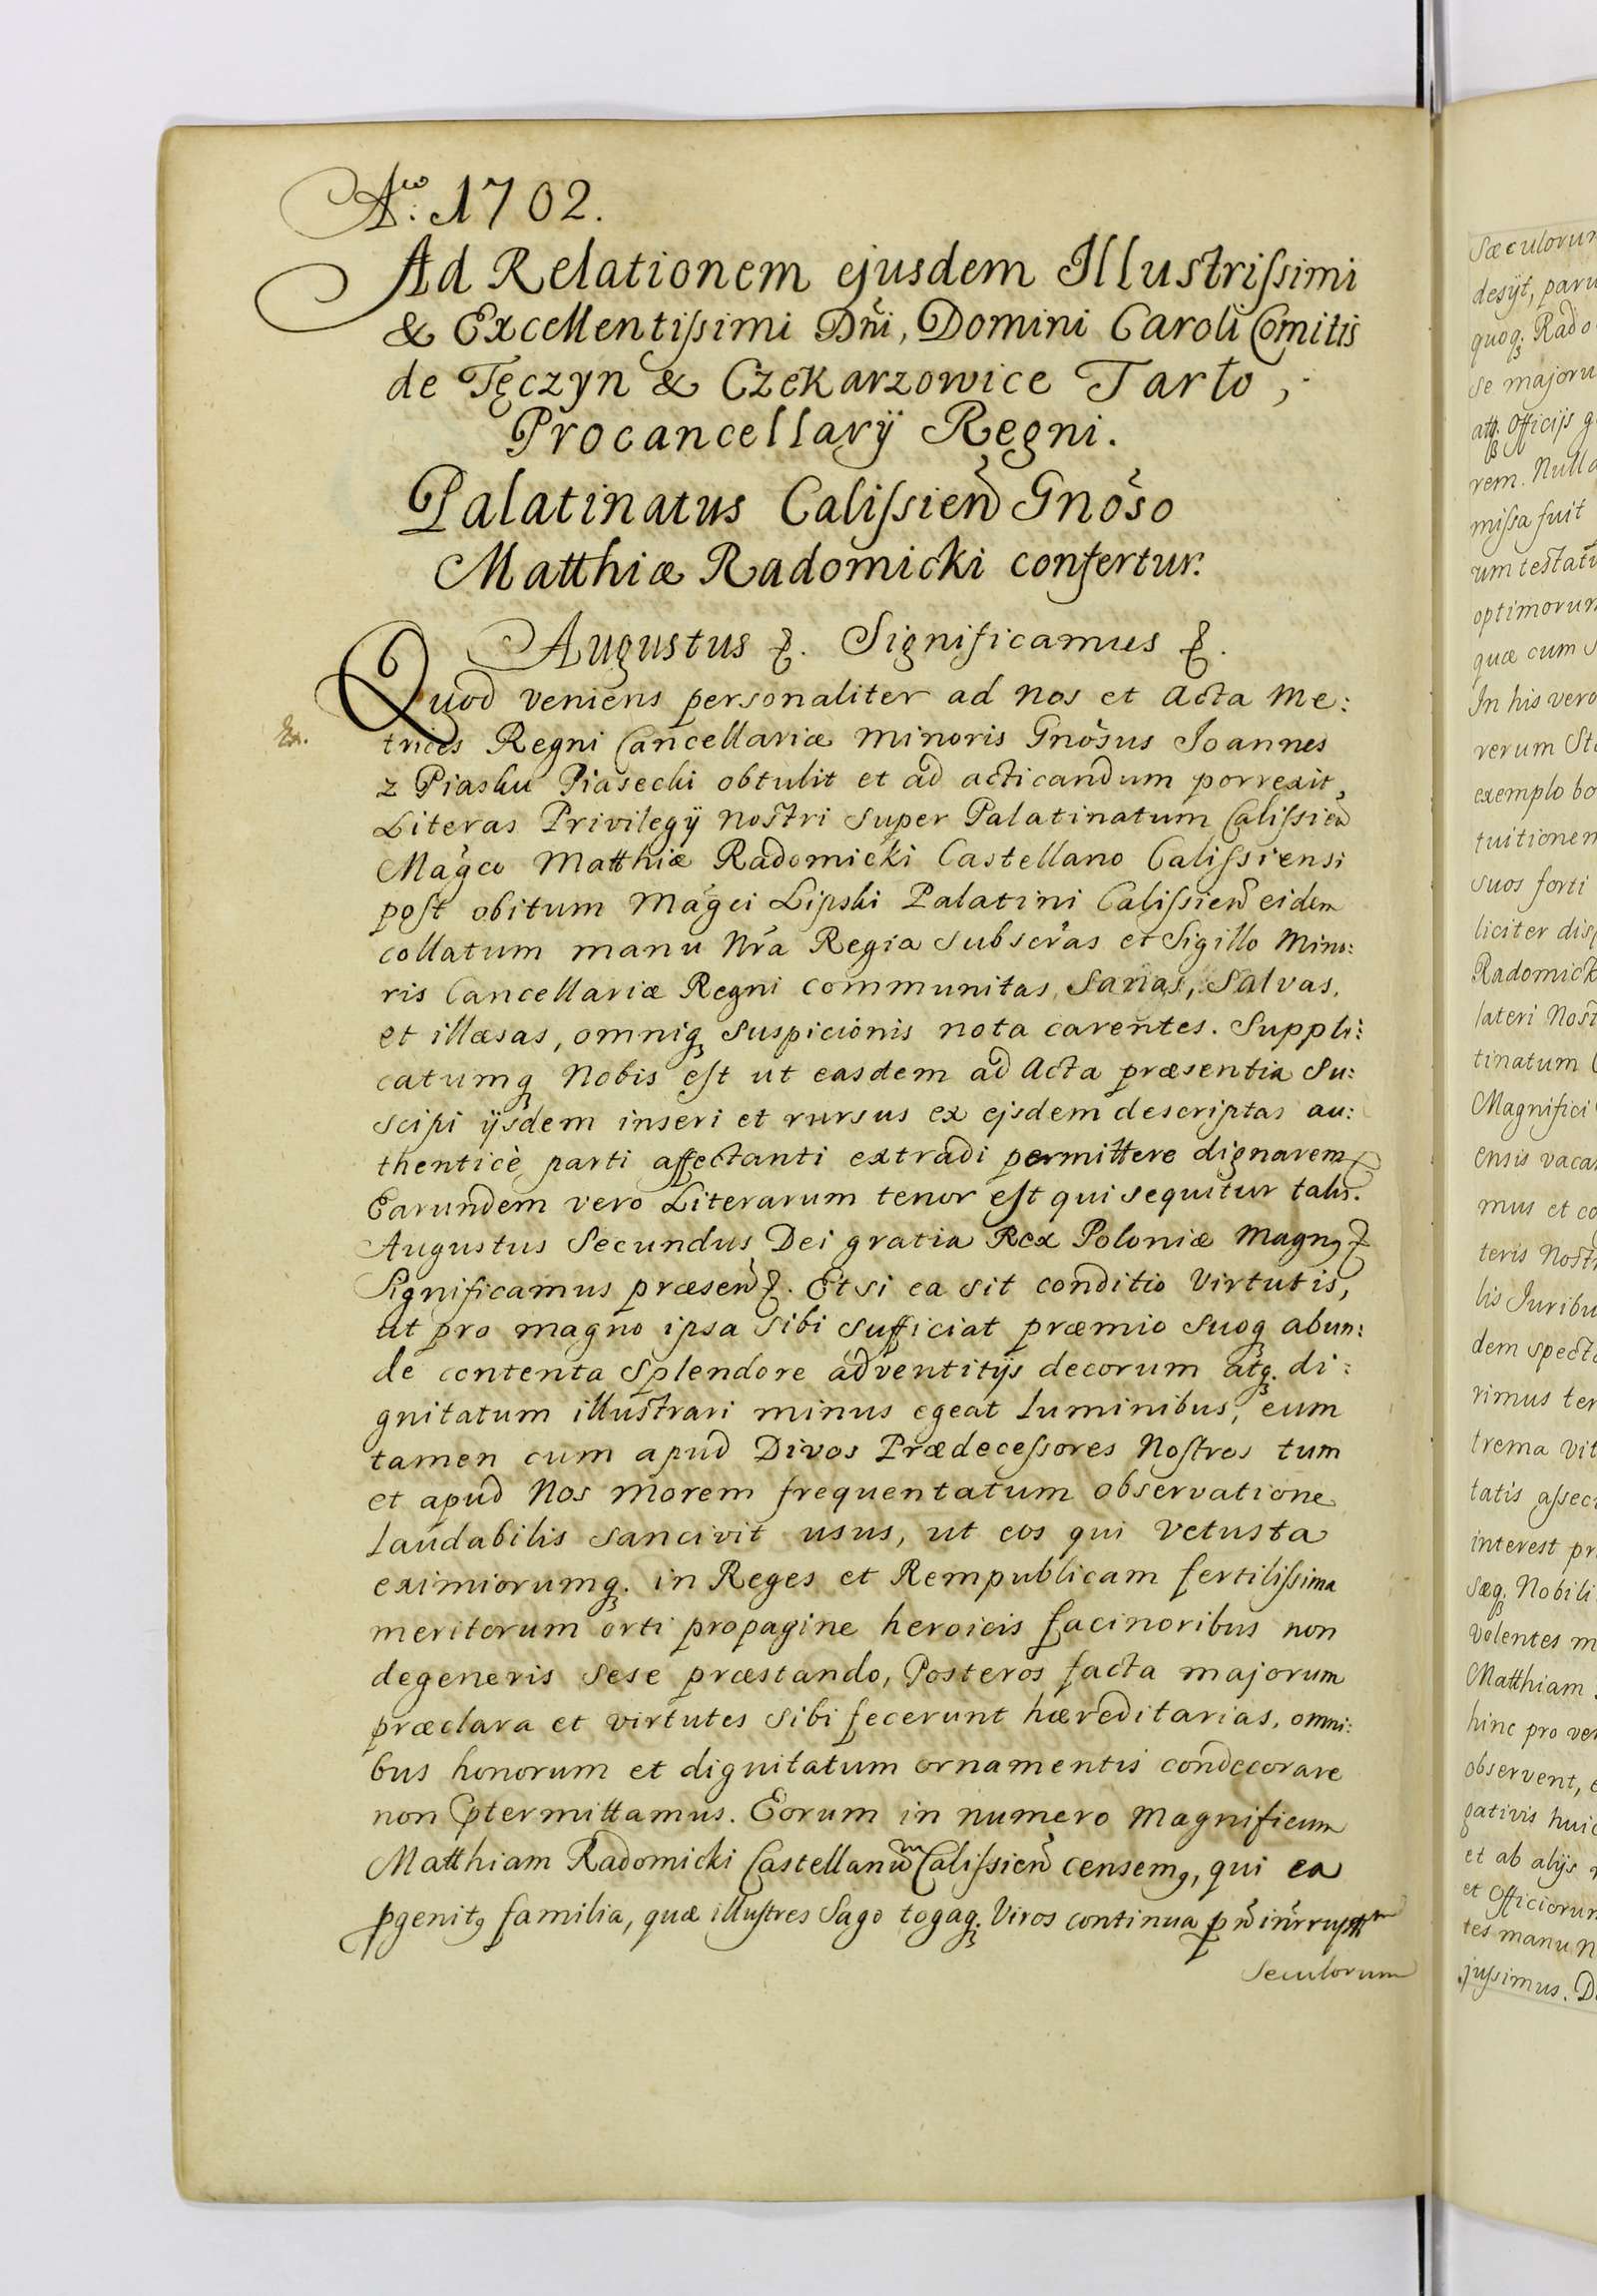 Aº. 1702.
Ad Relationem ejusdem Illustrissimi
& Excellentissimi Dñi, Domini Caroli Comitis
de Tęczyn & Czekarzowice Tarło,
Procancellarÿ Regni.
Palatinatus Calissien̄ Gnoso
Matthiæ Radomicki confertur.
Augustus &. Significamus &.
Quod veniens personaliter ad Nos et Acta Me:
trices Regni Cancellariæ Minoris Gnosus Joannes
z Piasku Piasecki obtulit et ad acticandum porrexit,
Literas Privilegÿ Nostri super Palatinatum Calissien̄
Magco Matthiæ Radomicki Castellano Calissiensi
post obitum Magci Lipski Palatini Calissien̄ eidem
collatum manu Nra Regia subscras et Sigillo Mino:
ris Cancellariæ Regni communitas, Sanas, Salvas,
et illæsas, omniq3 suspicionis nota carentes. Suppli:
catumq3 Nobis est ut easdem ad Acta præsentia Su:
scipi ÿsdem inseri et rursus ex ejsdem descriptas au:
thenticè parti affectanti extradi permittere dignarem̄
Earundem vero Literarum tenor est qui sequitur talis.
Augustus Secundus Dei gratia Rex Poloniæ Magn9 &
Significamus præsen̄ &. Etsi ea sit conditio Virtutis,
ut pro magno ipsa sibi sufficiat præmio suoq3 abun:
de contenta Splendore adventitÿs decorum atq3. di:
gnitatum illustrari minus egeat luminibus, eum
tamen cum apud Divos Prædecessores Nostros tum
et apud Nos morem frequentatum observatione
laudabilis sancivit usus, ut eos qui vetusta
eximiorumq3. in Reges et Rempublicam fertilissima
meritorum orti propagine heroicis facinoribus non
degeneris sese præstando, Posteros facta majorum
præclara et virtutes sibi fecerunt hæreditarias, omni:
bus honorum et dignitatum ornamentis condecorare
non ptermittamus. Eorum in numero Magnificum
Matthiam Radomicki Castellanum Calissien̄ censem9, qui ea
pgenit9 familia, quæ illustres Sago togaq3. Viros continua p
Seculorum
Sæculorum
desÿt,
quoq3. Rado
se majoru
atq3. Officÿs
rem. Nulla
missa fuit
um testat
optimorum
quæ cum
In his vero
rerum
exemplo bo
tuitionem
suos forti
liciter
Radomick
lateri
tinatum
Magnifici
ensis
mus et co
teris
lis Juribu
dem
rimus
trema
tatis
interest
Nobili
volentes
Matthiam
hinc pro
observent,
gativis
et ab alÿs
et Officiorum
tes manu
jussimus.